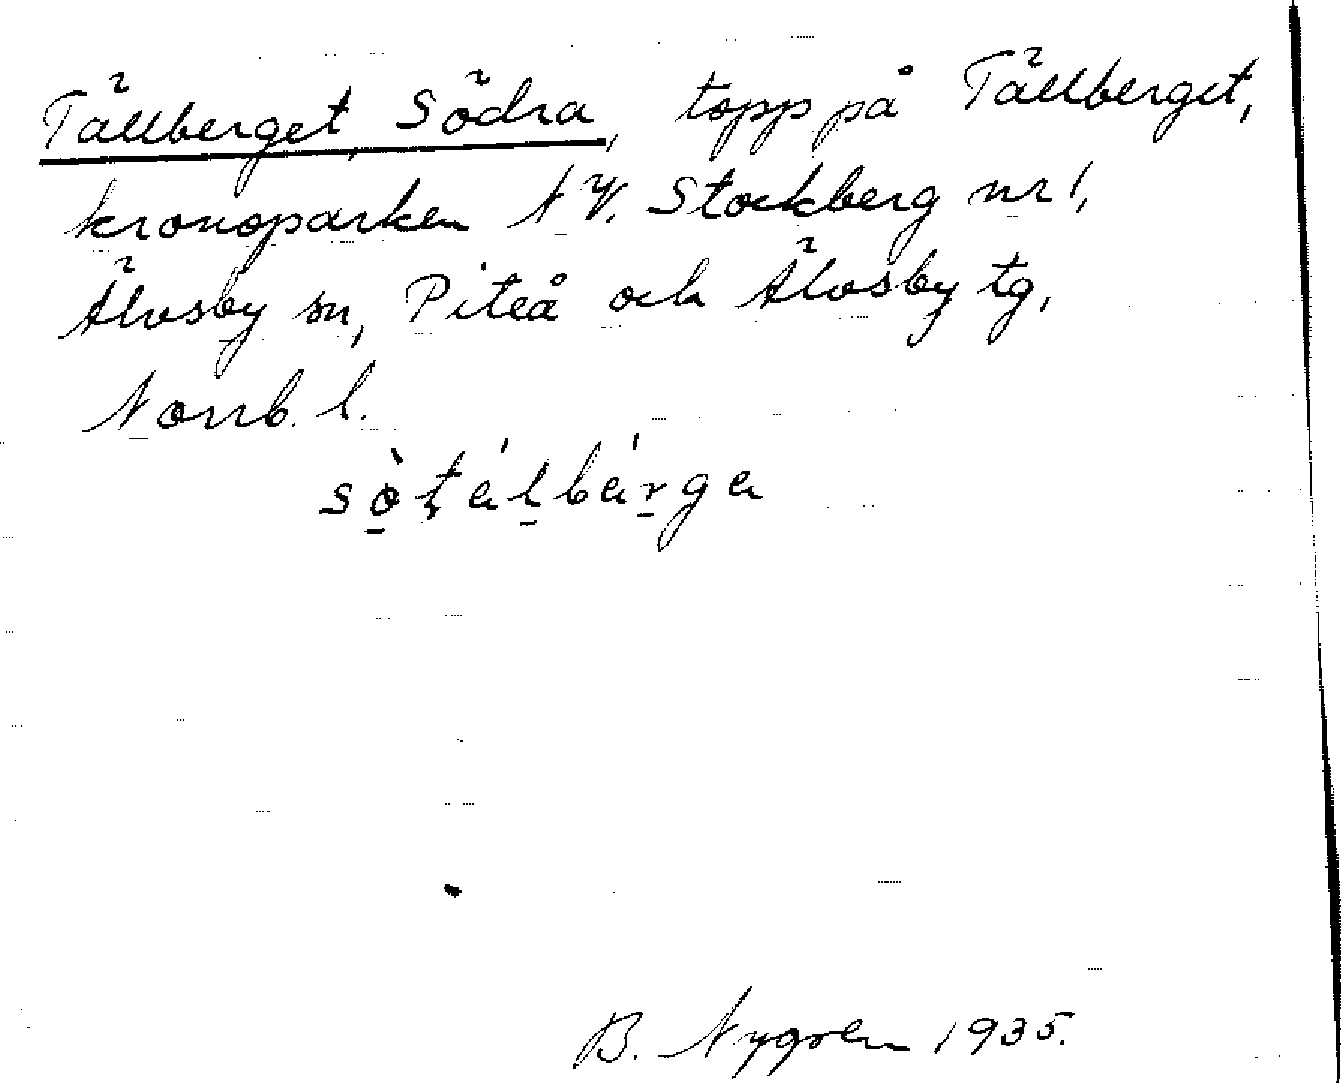 Tällberget, Södra, topp på Tällberget,
kronoparken N V. Stockberg nr 1,
Älvsby sn, Piteå och Älvsby tg,
Norrb. l.
sò̠ţál̠bár̠ga
B. Nygren 1935.